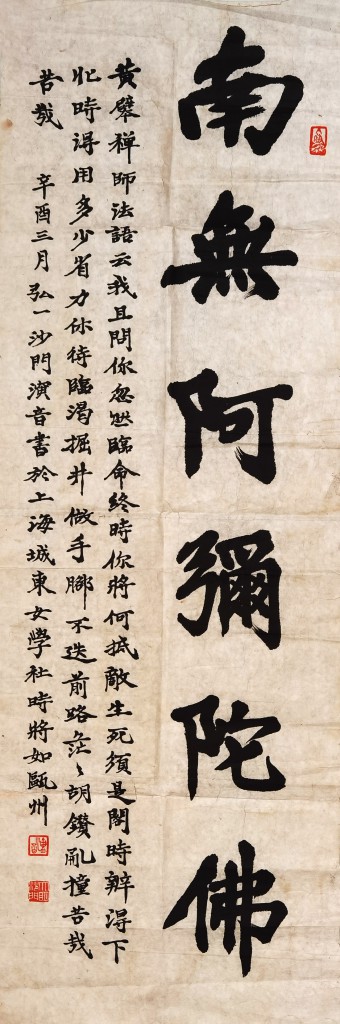 南無阿彌陀佛
黃檗禪師法語云我且問你忽然臨命終時你將何抵敵生死須是閑時辦得下
忙時得用多少省力你待臨渴掘井做手腳不迭前路茫〻胡鑽亂撞苦哉
苦哉 辛酉三月弘一沙門演音書於上海城東女學社時將如甌州